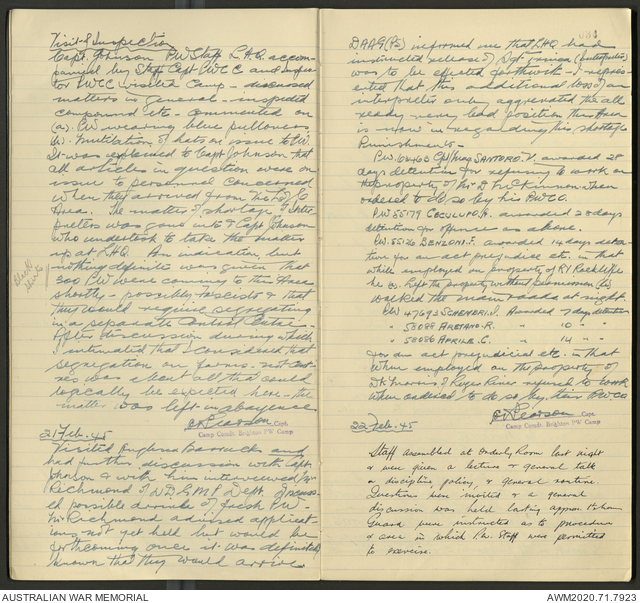 Visit of Inspection
Capt. Johnson PW Staff L.H.Q. accom-
panied by Staff Capt PWCC and Inspec-
tor PWCC visited Camp - discussed
matters in general - inspected
compound etc - commented on
(a). PW wearing blue pullovers
(b). Mutilation of hats on issue to PW.
It was explained to Capt Johnson that
all articles in question were on
issue to personnel concerned
when they arrived from his
Area. The matter of shortage of Inter-
preters was gone into & Capt Johnson
who undertook to take the matter
up at LHQ. An indication, but
nothing definite was given that
300 PW were coming to this Area
shortly - possibly Fascists & that
they would require segregating
in a separate Control Centre.
After discussion during which
I intimated that I considered that
segregation on farms
was about all that could
logically be expected here - the
matter was left in abeyance
Capt.
Camp Comdt. Brighton PW Camp
21 Feb. 45
Visited Anglesea Barracks and
had further discussion with Capt.
Johnson & with him interviewed Mr
Richmond of Dept. Discuss-
ed possible of fresh PW -
Mr Richmond advised applicat-
ions not yet held but would be
forthcoming once it was definitely
known that they would arrive.
DAAG(Ps) informed me that LHQ had
instructed release of Sgt (Interpreter)
was to be effected forthwith - I repres-
ented that this additional loss of an
interpreter only aggravated the al-
ready very bad position this Area
is now in regarding this shortage
Punishments -
PW. 62463 SANTORO. V. awarded 28
days detention for refusing to work on
the property of Mr D McKinnon when
ordered to do so by his PWCO.
PW 55179 awarded 20 days
detention for offences as above.
PW 55126 BENZONI. F. awarded 14 days deten-
tion for an act prejudice etc. in that
while employed on property of
he (a). left the property without permission (b)
walked the main roads at night.
PW 47693 SCHEMBRI. J. Awarded 7 days detention
" 58088 ARETANO. R. " 10 " "
" 58086 APRILE. G. " 14 " "
for an act prejudicial etc. in that
when employed on the property of
refused to work
when ordered to do so by their PWCO
Capt.
Camp Comdt. Brighton PW Camp
22 Feb. 45
Staff assembled at Orderly Room last night
& were given a lecture & general talk
on discipline, policy, & general routine.
Questions were invited & a general
discussion was held lasting approx. 1½ hours
Guard were instructed as to procedure
& area in which P.W. Staff were permitted
to exercise.
AUSTRALIAN WAR MEMORIAL
AWM2020.71.7923